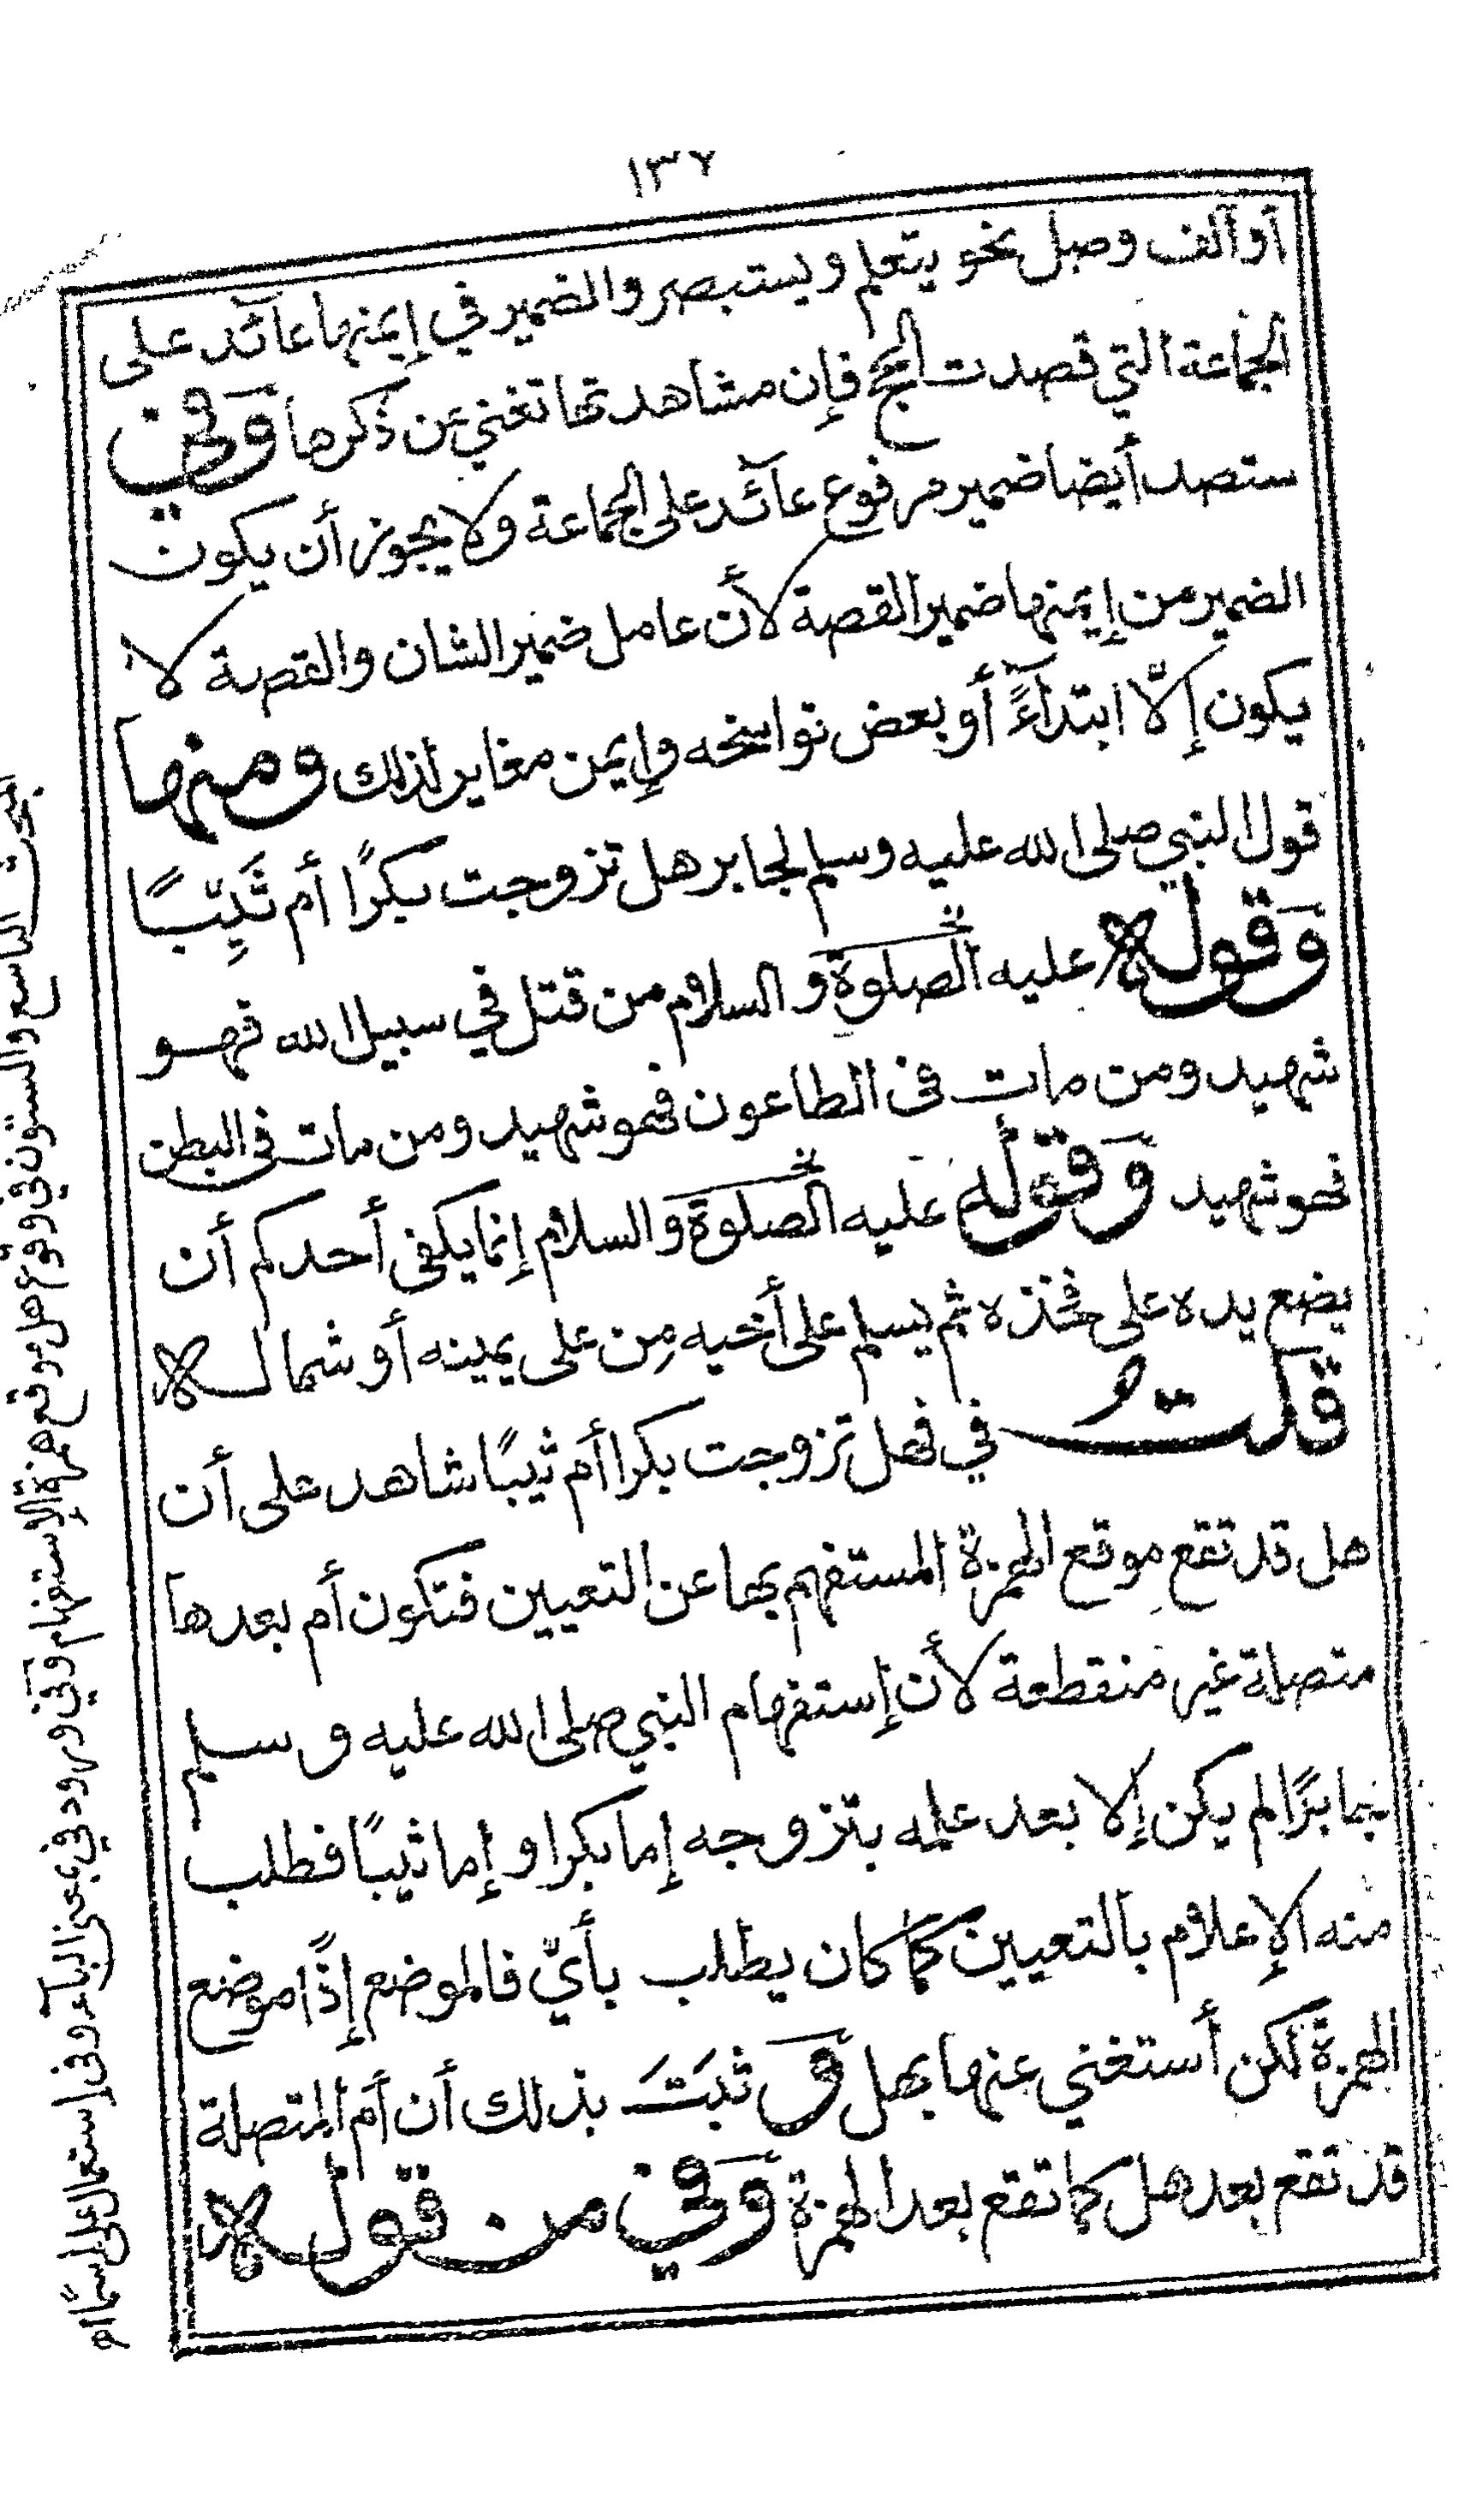 ١٣٦
أو ألف وصل نحو يتعلم ويستبصر والضمير في إيمنها عآئد على
الجماعة التي قصدت الحج فإن مشاهدتها تغني عن ذكرها وفي
ستصد أيضا ضمير مرفوع عآئد على الجماعة ولا يجوز أن يكون
الضمير من إيمنها ضمير القصة لأن عامل ضمير الشان والقصة لا
يكون إلّا ابتدآءً أو بعض نواسخه وإيمن مغاير لذلك ومنها
قول النبي صلى الله عليه وسلم لجابر هل تزوجت بكرًا أم ثَيِّبًا
وقوله عليه الصلوة والسلام من قتل في سبيل الله فهو
شهيد ومن مات في الطاعون فهو شهيد ومن مات في البطن
فهو شهيد وقوله عليه الصلوة والسلام إنما يكفى أحدكم أن
يضع يده على فخذه ثم يسلم على أخيه مِن على يمينه أو شماله
قلت في هل تزوجت بكرا أم ثيبًا شاهد على أن
هل قد تقع موقع الهمزة المستفهم بها عن التعيين فتكون أم بعدها
متصلة غير منقطعة لأن إستفهام النبي صلى الله عليه وسلم
جابرًا لم يكن إلا بعد علمه بتزوجه إما بكرا وإما ثيبًا فطلب
منه الإعلام بالتعيين كما كان يطلب بأيّ فالموضع إذًا موضع
الهمزة لكن أستغني عنها بهل وثبَتَ بذلك أن أم المتصلة
قد تقع بعد هل كما تقع بعد الهمزة وفي من قوله
والستون في وقوع هل موقع همزة الإستفهام وفي ورود في بمعنى البآء وفى إستعمال على إسمًا م